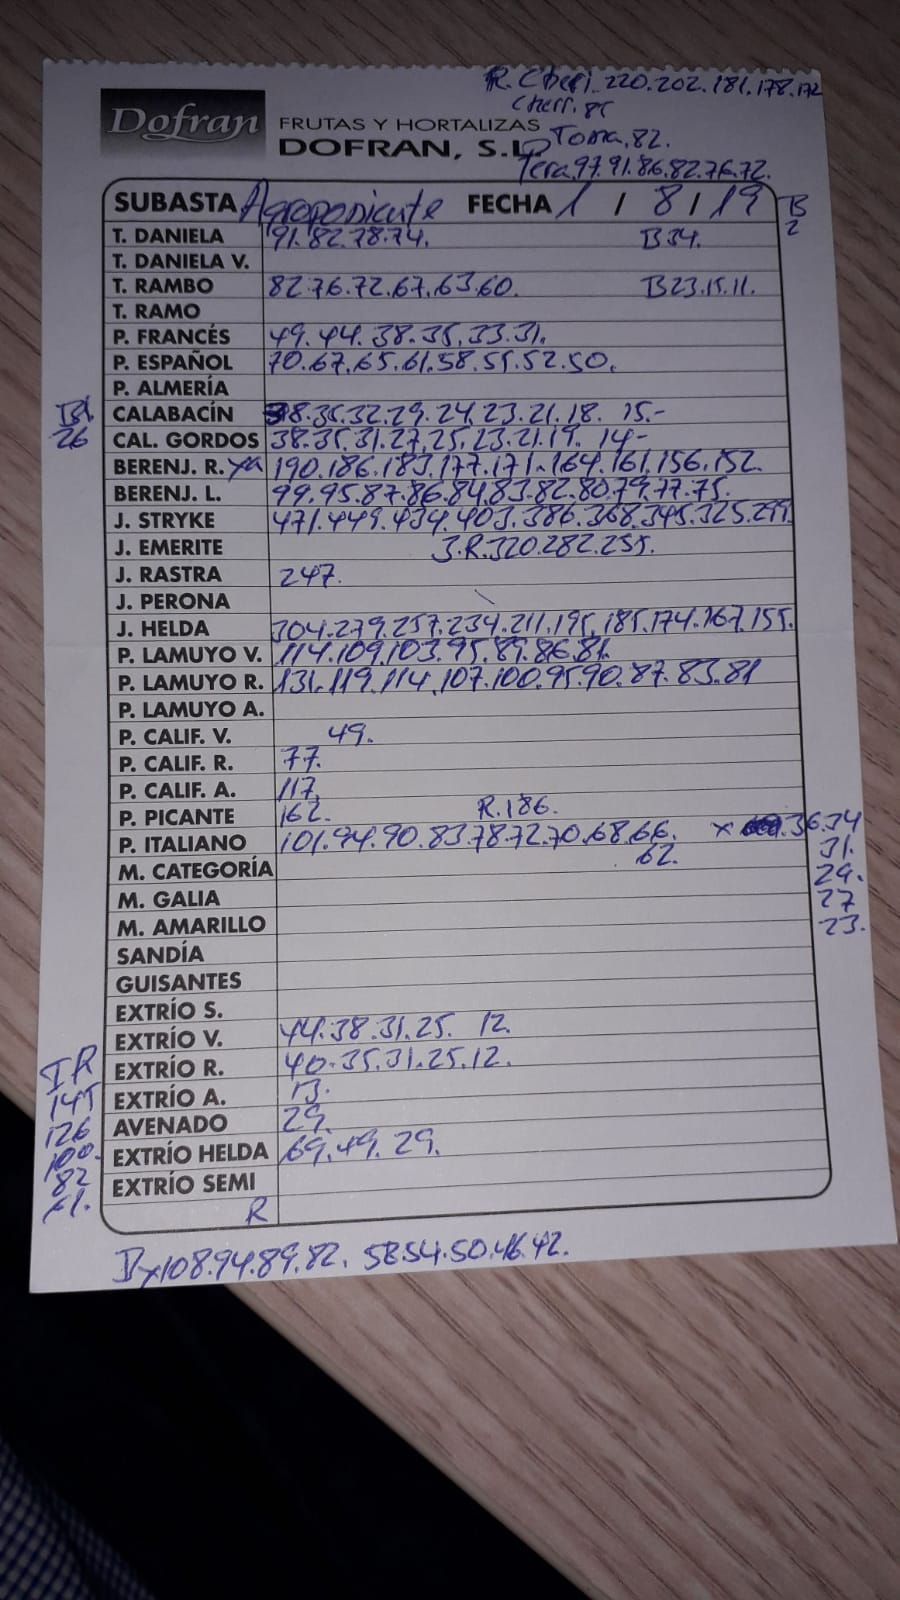 R. Cheri. 220.202.181.178.172
Cherr. 85
Toma. 82.
Tera. 97.91.86.82.76.72.
Dofran FRUTAS Y HORTALIZAS
DOFRAN, S.L.
SUBASTA Agroponiente FECHA 1 / 8 / 19 B
2
T. DANIELA 91.82.78.74. B34.
T. DANIELA V.
T. RAMBO 82.76.72.67.63.60. B23.15.11.
T. RAMO
P. FRANCÉS 49.44.38.35.33.31.
P. ESPAÑOL 70.67.65.61.58.55.52.50.
P. ALMERÍA
Bl. CALABACÍN 38.35.32.29.24.23.21.18. 15.-
26 CAL. GORDOS 38.35.31.27.25.23.21.19. 14-
BERENJ. R. 190.186.183.177.171.164.161.156.152.
BERENJ. L. 99.95.87.86.84.83.82.80.79.77.75.
J. STRYKE 471.449.434.403.386.368.345.325.299.
J. EMERITE J.R.320.282.255.
J. RASTRA 247.
J. PERONA
J. HELDA 304.279.257.234.211.195.185.174.167.155.
P. LAMUYO V. 114.109.103.95.89.86.81.
P. LAMUYO R. 131.119.114.107.100.95.90.87.83.81
P. LAMUYO A.
P. CALIF. V. 49.
P. CALIF. R. 77.
P. CALIF. A. 117.
P. PICANTE 162. R.186.
P. ITALIANO 101.94.90.83.78.72.70.68.66. x 36.34
62. 31.
M. CATEGORÍA 29.
M. GALIA 27
M. AMARILLO 23.
SANDÍA
GUISANTES
EXTRÍO S.
EXTRÍO V. 44.38.31.25. 12.
IR EXTRÍO R. 40.35.31.25.12.
145 EXTRÍO A. 13.
126 AVENADO 29.
100. EXTRÍO HELDA 69.49.29.
82 EXTRÍO SEMI
R
108.94.89.82. 58.54.50.46.42.